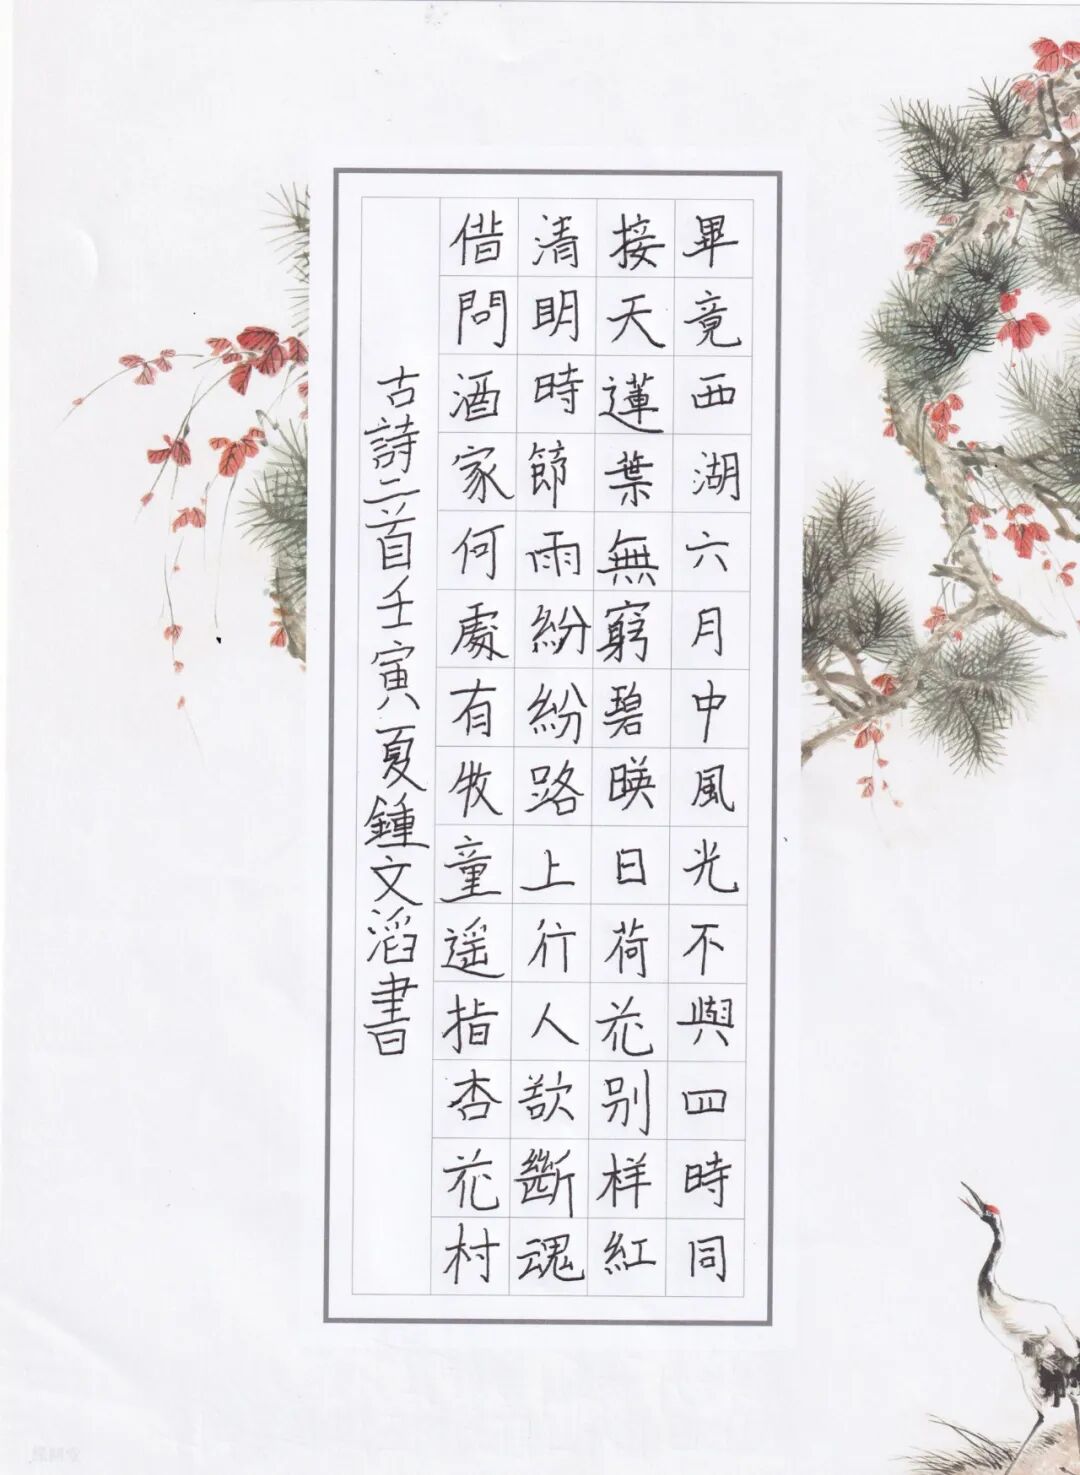 畢竟西湖六月中風光不與四時同
接天蓮葉無窮碧暎日荷花别样紅
清明時節雨紛紛路上行人欲斷魂
借問酒家何處有牧童遥指杏花村
古詩二首壬寅夏鍾文滔書